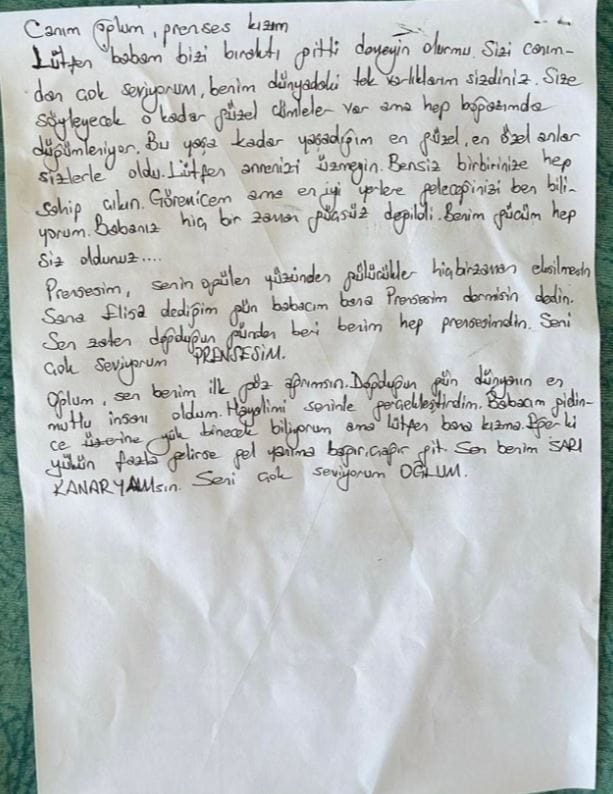 Canım oğlum, prenses kızım
Lütfen babam bizi bıraktı gitti demeyin olurmu. Sizi canım-
dan çok seviyorum, benim dünyadaki tek varlıklarım sizdiniz. Size
söyleyecek o kadar güzel cümleler var ama hep boğazımda
düğümleniyor. Bu yaşa kadar yaşadığım en güzel, en özel anlar
sizlerle oldu. Lütfen annenizi üzmeyin. Bensiz birbirinize hep
sahip çıkın. Göremicem ama en iyi yerlere geleceğinizi ben bili-
yorum. Babanız hiç bir zaman güçsüz değildi. Benim gücüm hep
siz oldunuz....
Prensesim, senin o gülen yüzünden gülücükler hiçbirzaman eksilmesin
Sana Elisa dediğim gün babacım bana Prensesim dermisin dedin.
Sen zaten doğduğun günden beri benim hep prensesimdin. Seni
çok seviyorum PRENSESİM.
Oğlum, sen benim ilk göz ağrımsın. Doğduğun gün dünyanın en
mutlu insanı oldum. Hayalimi seninle gerçekleştirdim. Babacım gidin-
ce üzerine yük binecek biliyorum ama lütfen bana kızma. Eğer ki
yükün fazla gelirse gel yanıma bağır, çağır git. Sen benim SARI
KANARYAMsın. Seni çok seviyorum OĞLUM.